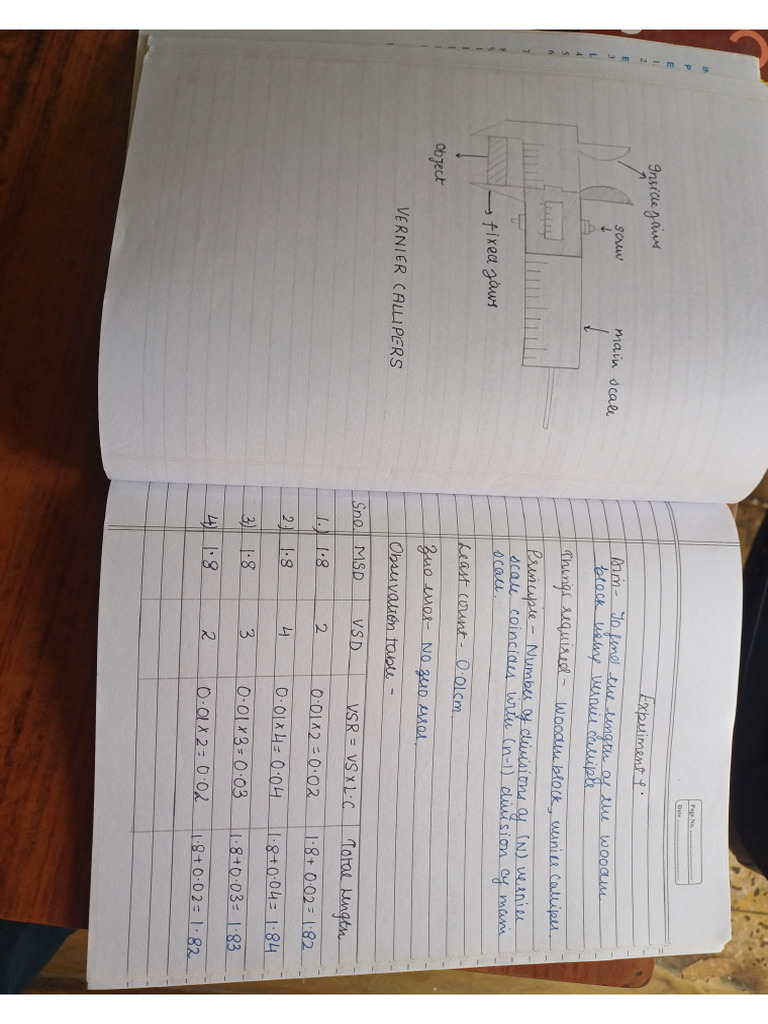 Inside jaws
screw
main scale
Object
fixed jaws
VERNIER CALLIPERS
Page No.
Date
Experiment 1.
Aim- To find the length of the wooden
block using vernier calliple
Things required- Wooden block, vernier calliper.
Principle- Number of divisions of (N) vernier
scale coincides with (n-1) division of main
scale.
Least count- 0.01cm
Zero error- No zero error.
Observation table-
Sno. MSD VSD VSR = VS×L.C Total length
1.) 1.8 2 0.01×2=0.02 1.8+0.02=1.82
2) 1.8 4 0.01×4=0.04 1.8+0.04=1.84
3) 1.8 3 0.01×3=0.03 1.8+0.03=1.83
4) 1.8 2 0.01×2=0.02 1.8+0.02=1.82